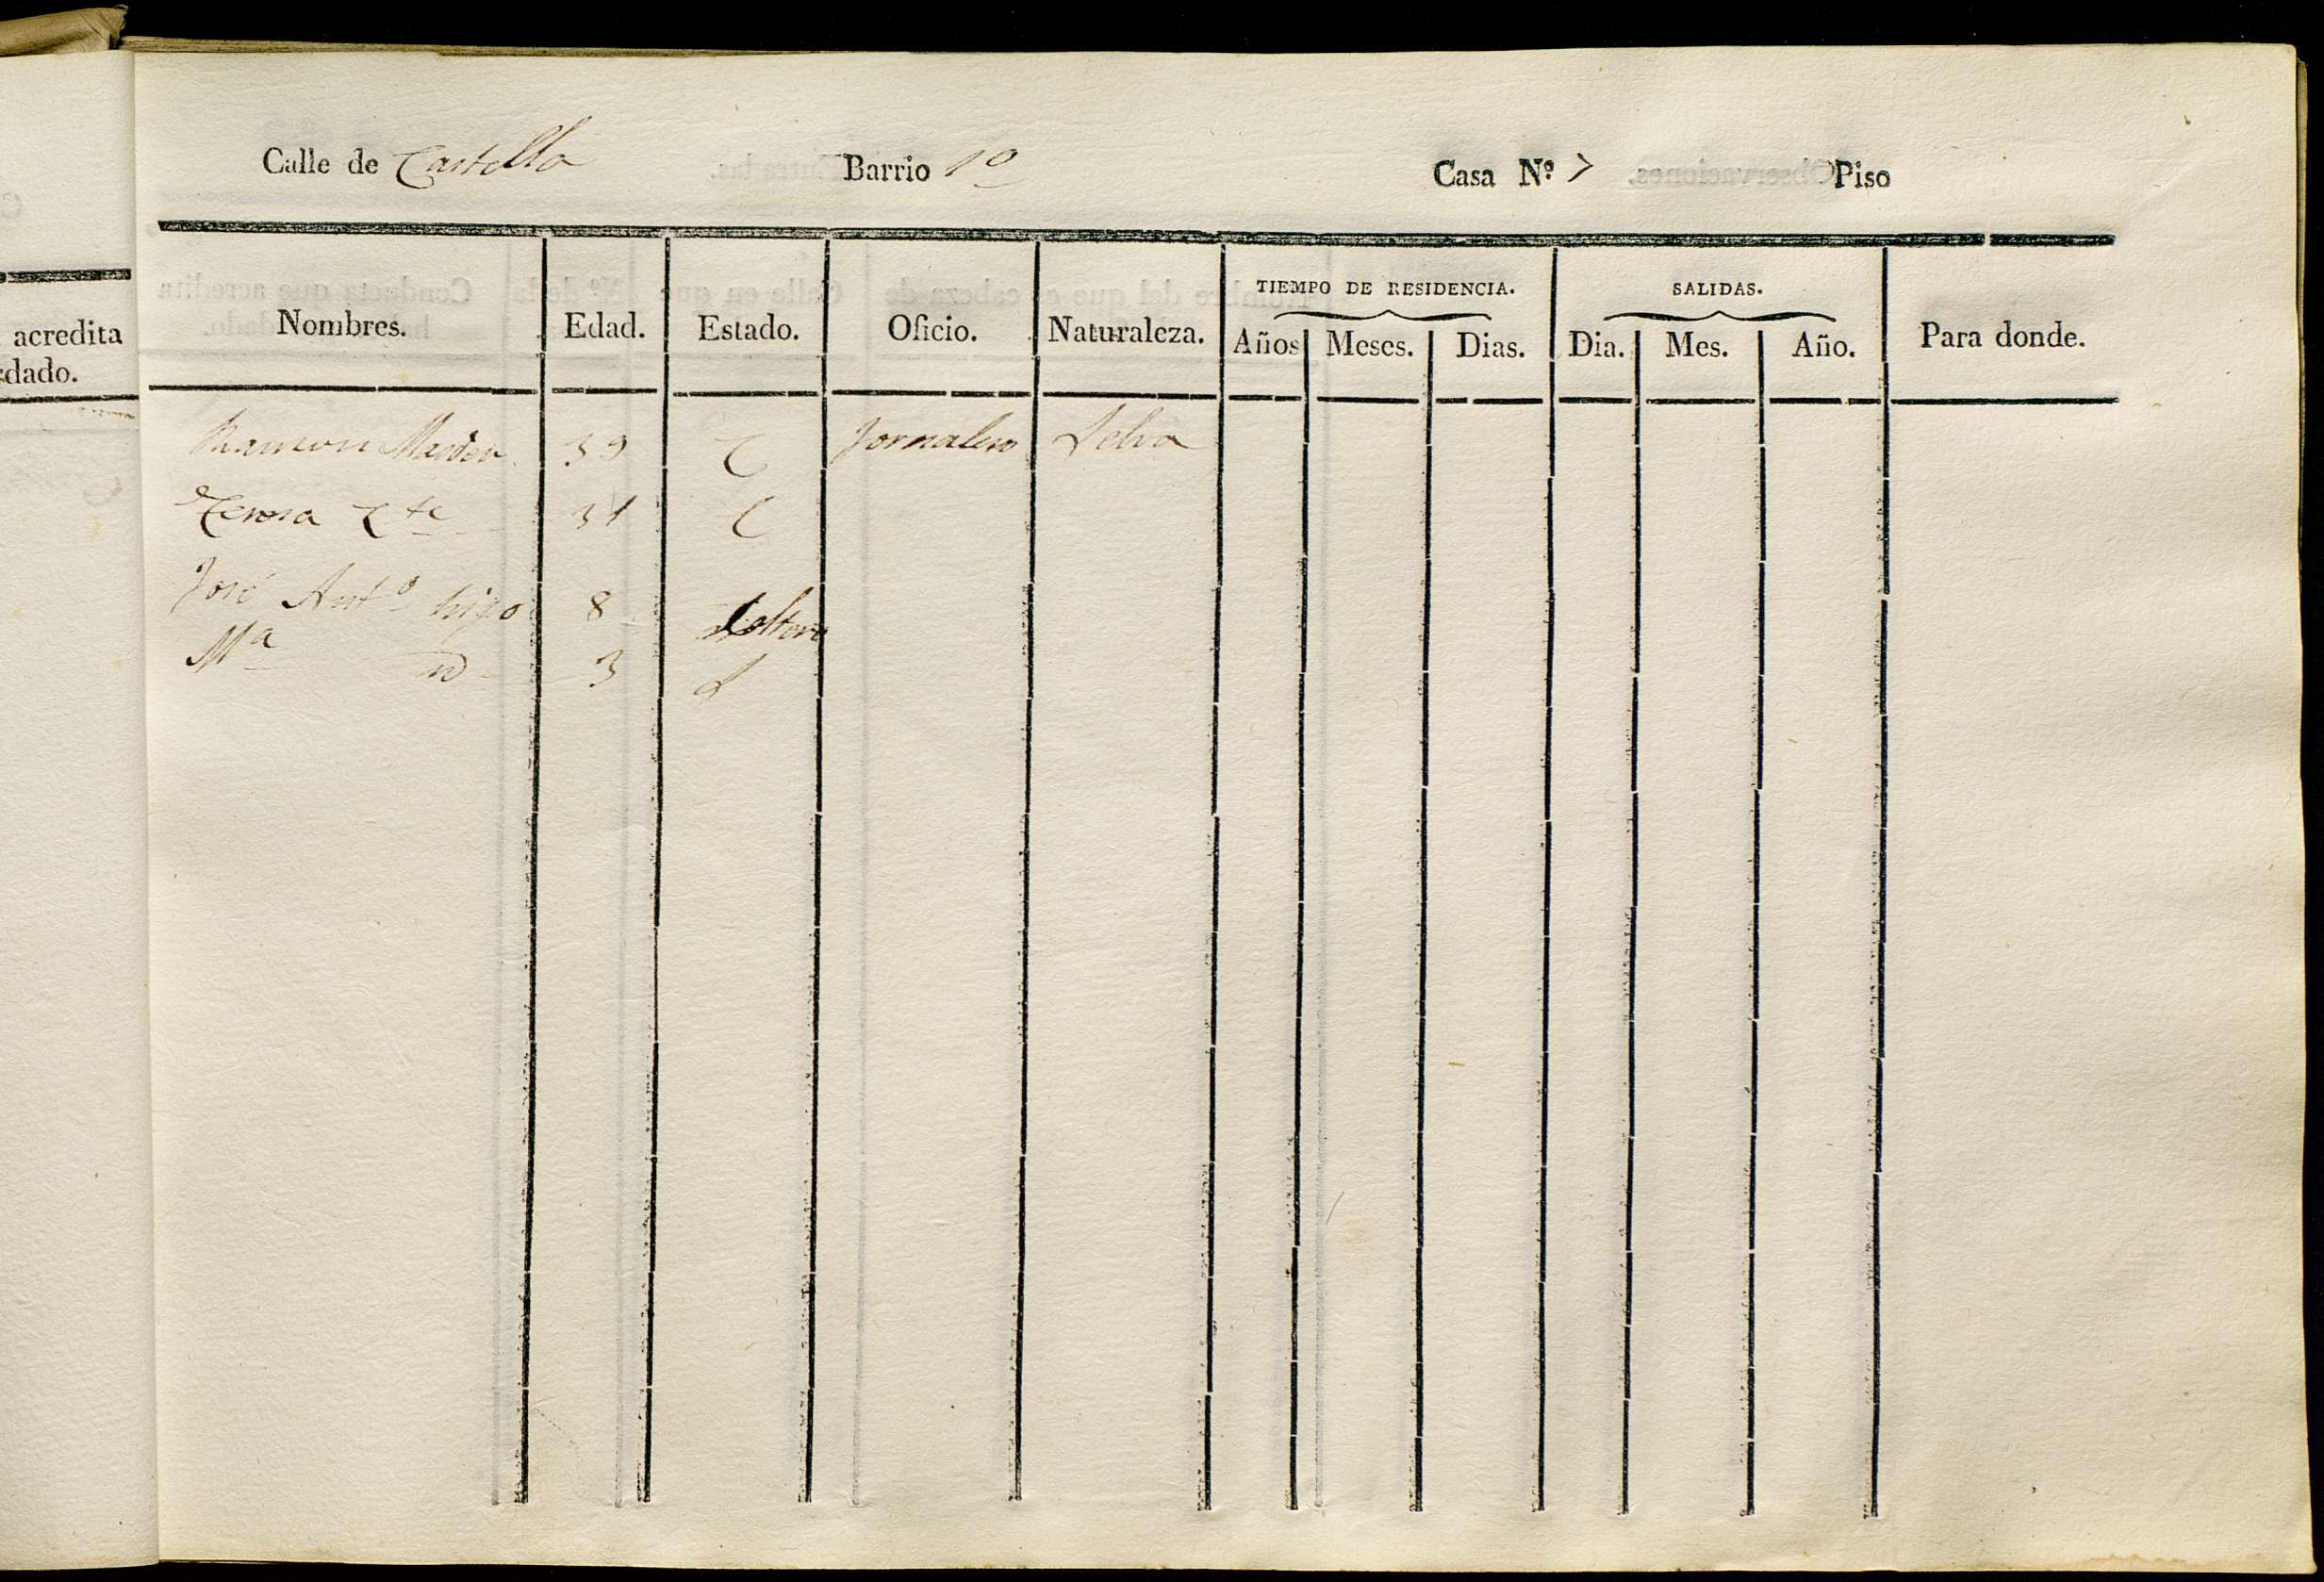 Calle de Castello Barrio 1º Casa Nº 7 Piso
acredita
dado.
TIEMPO DE RESIDENCIA. SALIDAS.
Nombres. Edad. Estado. Oficio. Naturaleza. Años Meses. Dias. Dia. Mes. Año. Para donde.
Ramon 39 C Jornalero Selva
Teresa 31 C
José Antº hijo 8 Soltero
Mª id 3 S